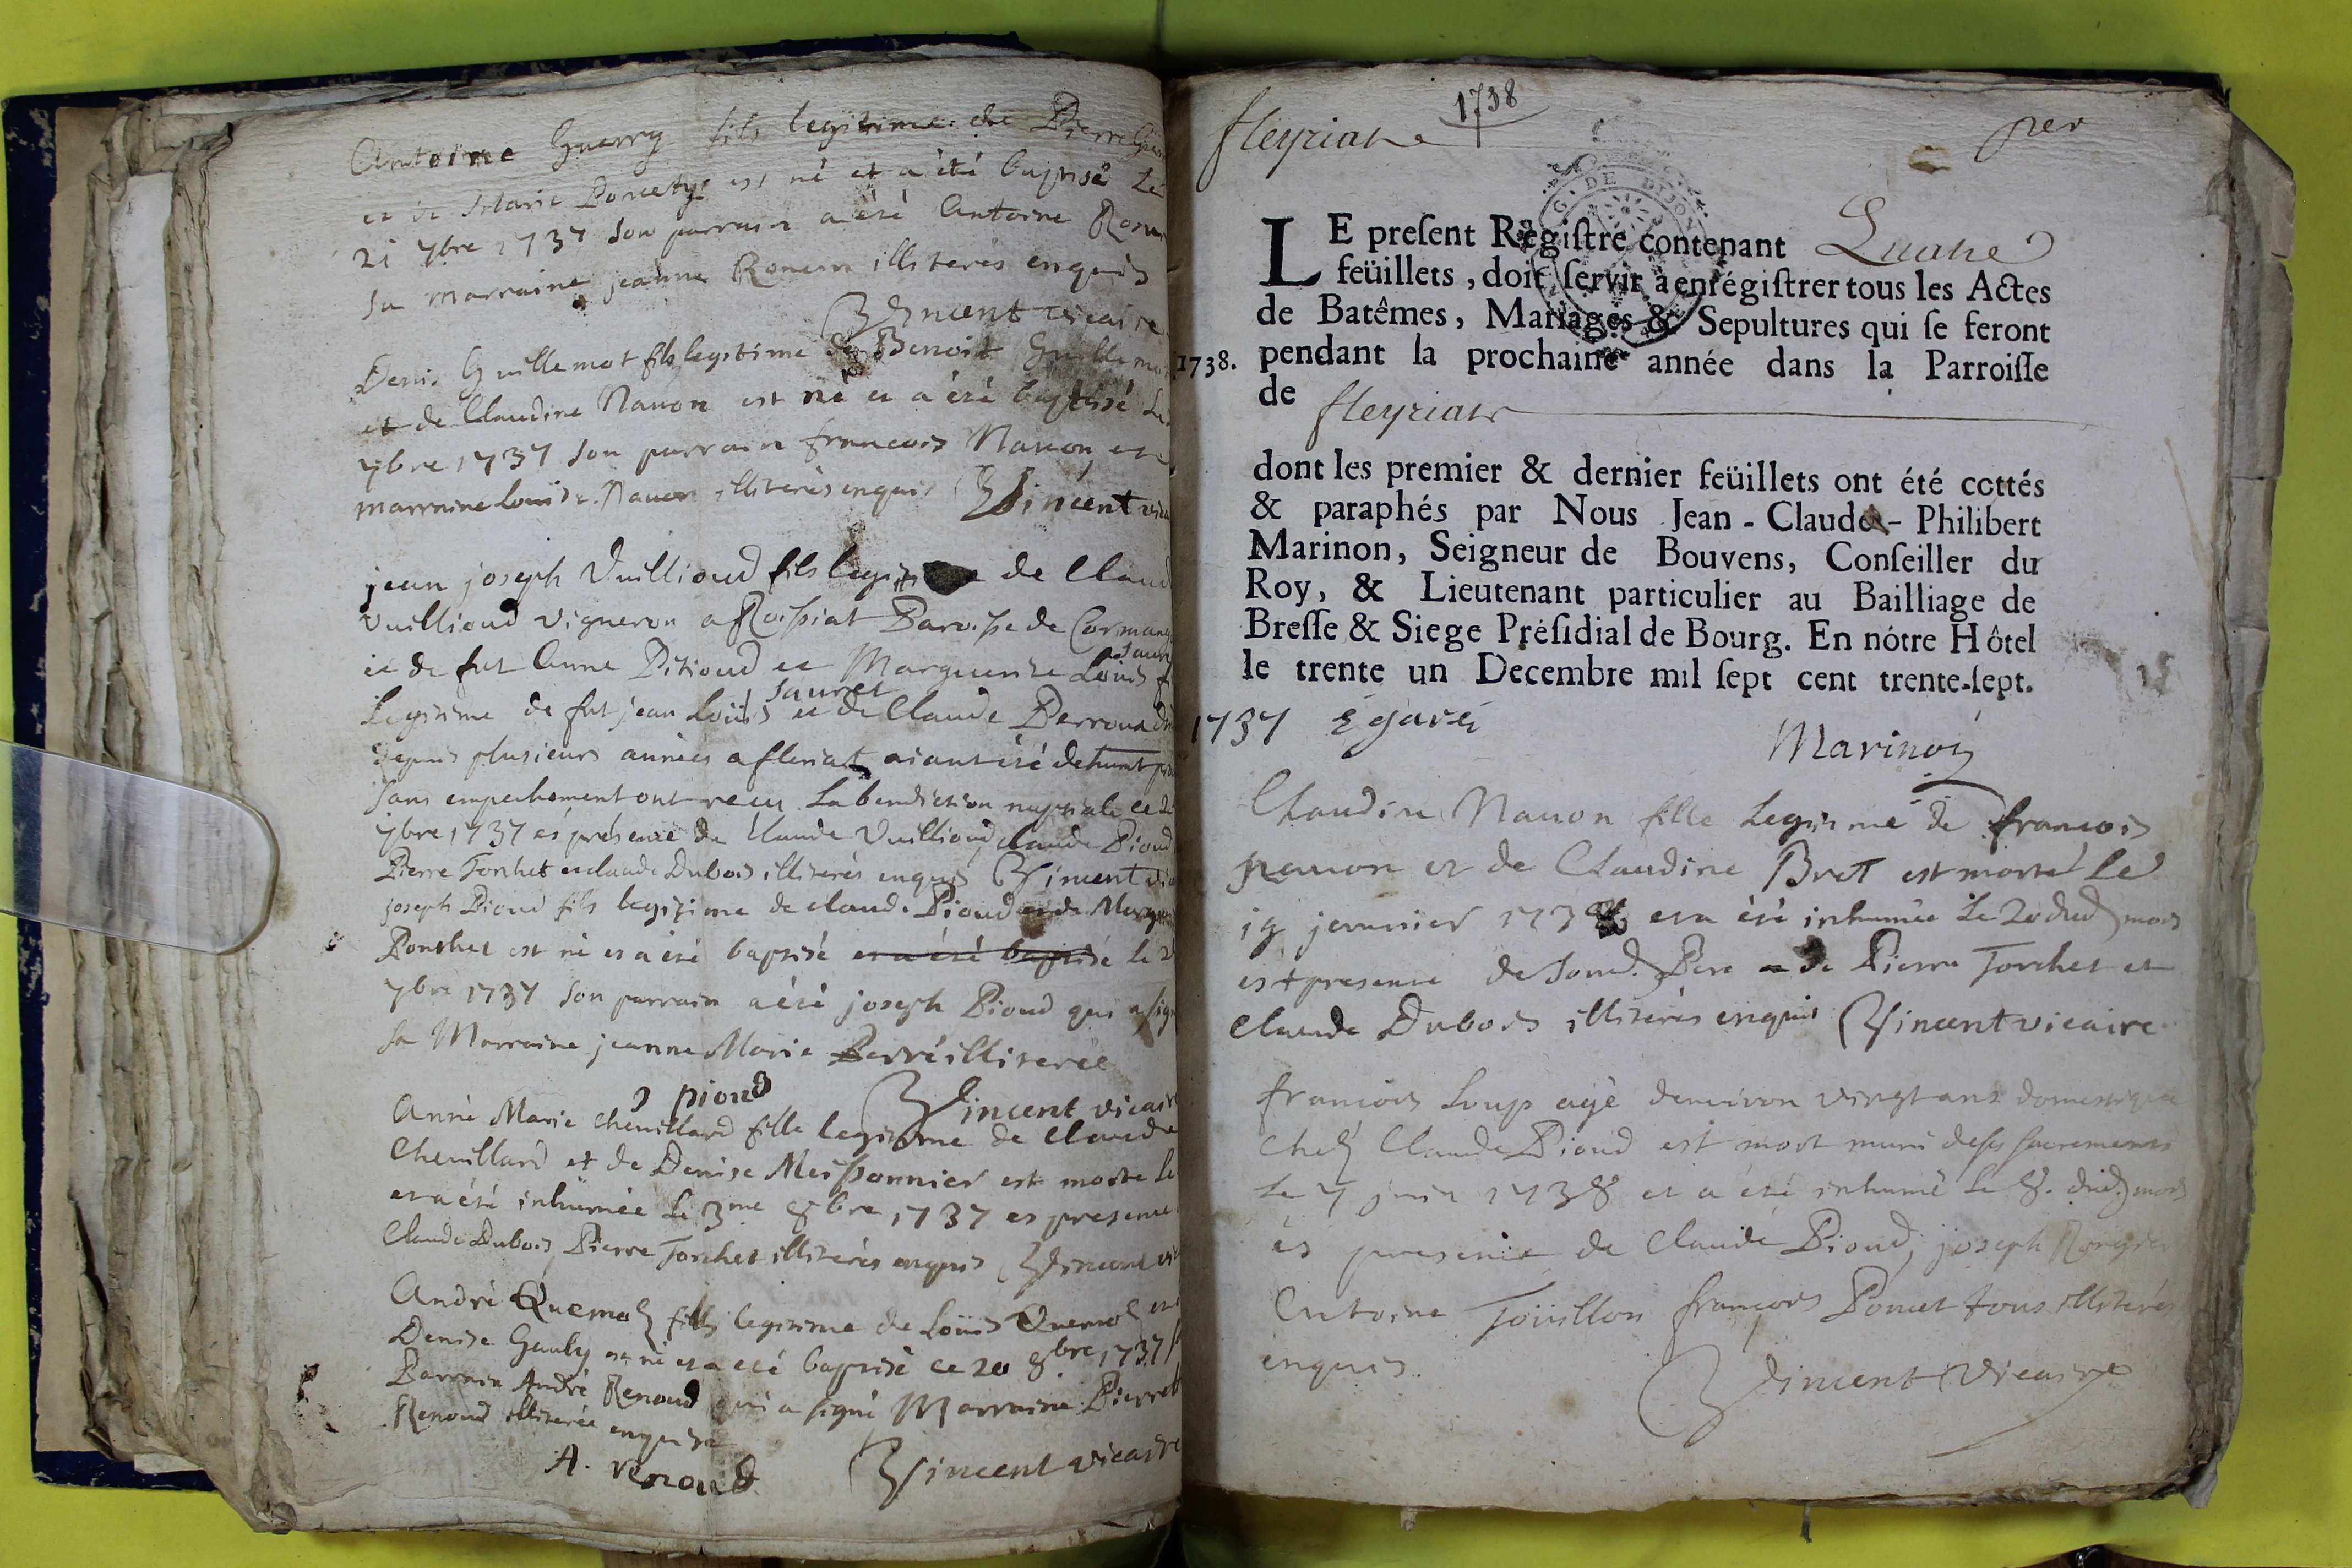 Antoine Guerry fils legitime de Pierre
et de Marie Poncety est né et a été baptisé Le
21 7bre 1737 son parrain a été Antoine
sa marraine jeanne Ronem illiterés enquis
Vincent vicaire
Denis Guillemot fils legitime de Benoit Guillemo
et de Claudine Nauon est né et a été baptisé Le
7bre 1737 son parrain francois Nauon et
marraine Louise Nauon illiterés enquis Vincent vic
jean joseph Vuillioud fils legit de Claud
Vuillioud vigneron a Rossiat Paroisse de Cormang
et de fut Anne Pitioud et Marguerite Louis
Sauret
Legitime de fut jean Louis et de Claude Perroud
depuis plusieurs années a fleriat aiant été
sans empechement ont recu La benediction nuptiale ce
7bre 1737 és présence de Claude Vuillioud, claude Pioud
Pierre Torchet et claude Dubois illiterés enquis Vincent
joseph Pioud fils legitime de claude Pioud et de Marg
Ponthet est né et a été baptisé et a été baptisé le
7bre 1737 son parrain a été joseph Pioud qui a sig
sa Marraine jeanne Marie Perré illiterée
J pioud Vincent vicair
Anne Marie Cheuillard fille legitime de Claude
Cheuillard et de Denise Meissonnier est morte Le
et a été inhumée Le 3me 8bre 1737 es presence
Claude Dubois, Pierre Torchet illiterés enquis Vincent vi
André Quemol fils legitime de Louis Quemol
Denise Gauly est né et a été baptisé ce 20 8bre 1737
Parrain André Renoud qui a signé Marraine Pierret
Renoud illiterée enquise
A. renoud Vincent vicaire
1738
fleyriat per
LE present Régistre contenant Quatre
feüillets, doit servir à enrégistrer tous les Actes
de Batêmes, Mariages & Sepultures qui se feront
1738. pendant la prochaine année dans la Parroisse
de fleyriat
dont les premier & dernier feüillets ont été cottés
& paraphés par Nous Jean-Claude-Philibert
Marinon, Seigneur de Bouvens, Conseiller du
Roy, & Lieutenant particulier au Bailliage de
Bresse & Siege Présidial de Bourg. En nôtre Hôtel
le trente un Decembre mil sept cent trente-sept.
1737 Egaré
Marinon
Claudine Nauon fille Legitime de francois
nauon et de Claudine Brett est morte Le
19 januier 1738 et a été inhumée Le 20 dud mois
es presence de Soud. Pere de Pierre Torchet et
Claude Dubois illiterés enquis Vincent vicaire
francois Loup agé denuiron vingt ans domestique
chez Claude Pioud est mort muni de ses sacrements
Le 7 juin 1738 et a été inhumé Le 8. dud. mois
és presence de Claude Pioud, joseph
Antoine Toüillon francois Poncet tous illiterés
enquis.
Vincent Vicaire